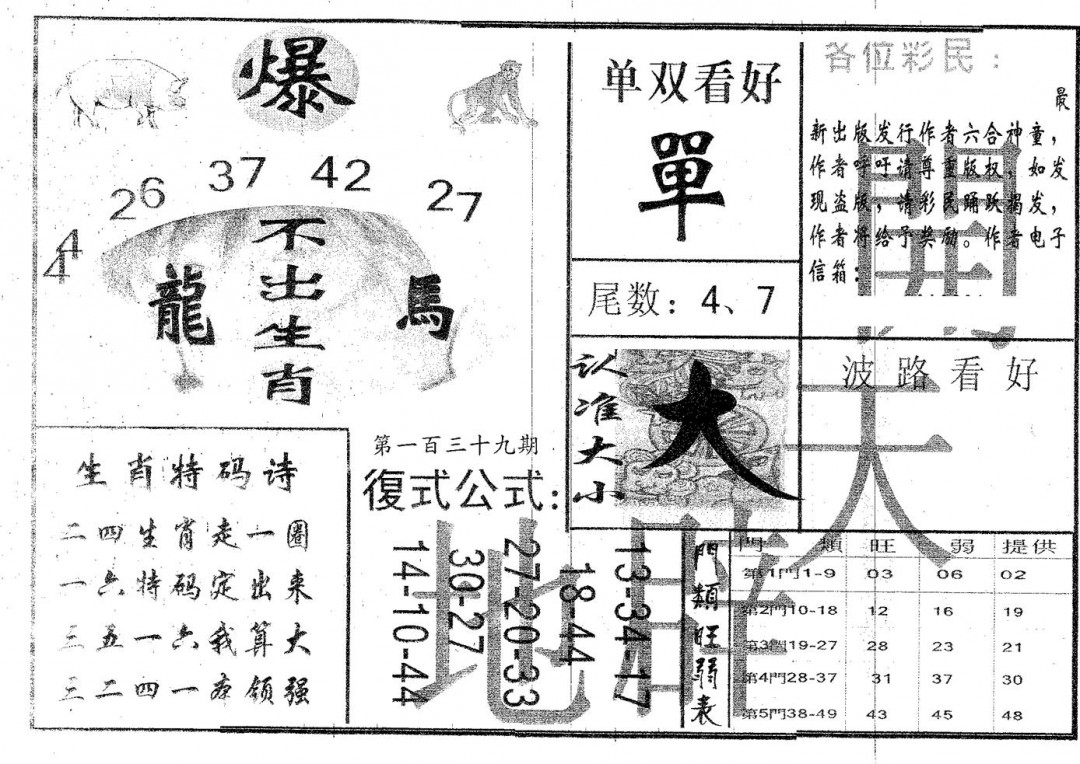 爆
26 37 42 27
44
不出生肖
龍 馬
生肖特码诗
二四生肖走一圈
一六特码定出来
三五一六我算大
三二四一亦领强
第一百三十九期
復式公式:
13-34-17
18-44
27-20-33
30-27
14-10-44
单双看好
單
尾数: 4、7
认准大小
大
各位彩民:
最
新出版发行作者六合神童,
作者呼吁请尊重版权, 如发
现盗版, 请彩民踊跃揭发,
作者将给予奖励。作者电子
信箱:
波路看好
門類旺弱表
門 類 旺 弱 提供
第1門1-9 03 06 02
第2門10-18 12 16 19
第3門19-27 28 23 21
第4門28-37 31 37 30
第5門38-49 43 45 48
天
地